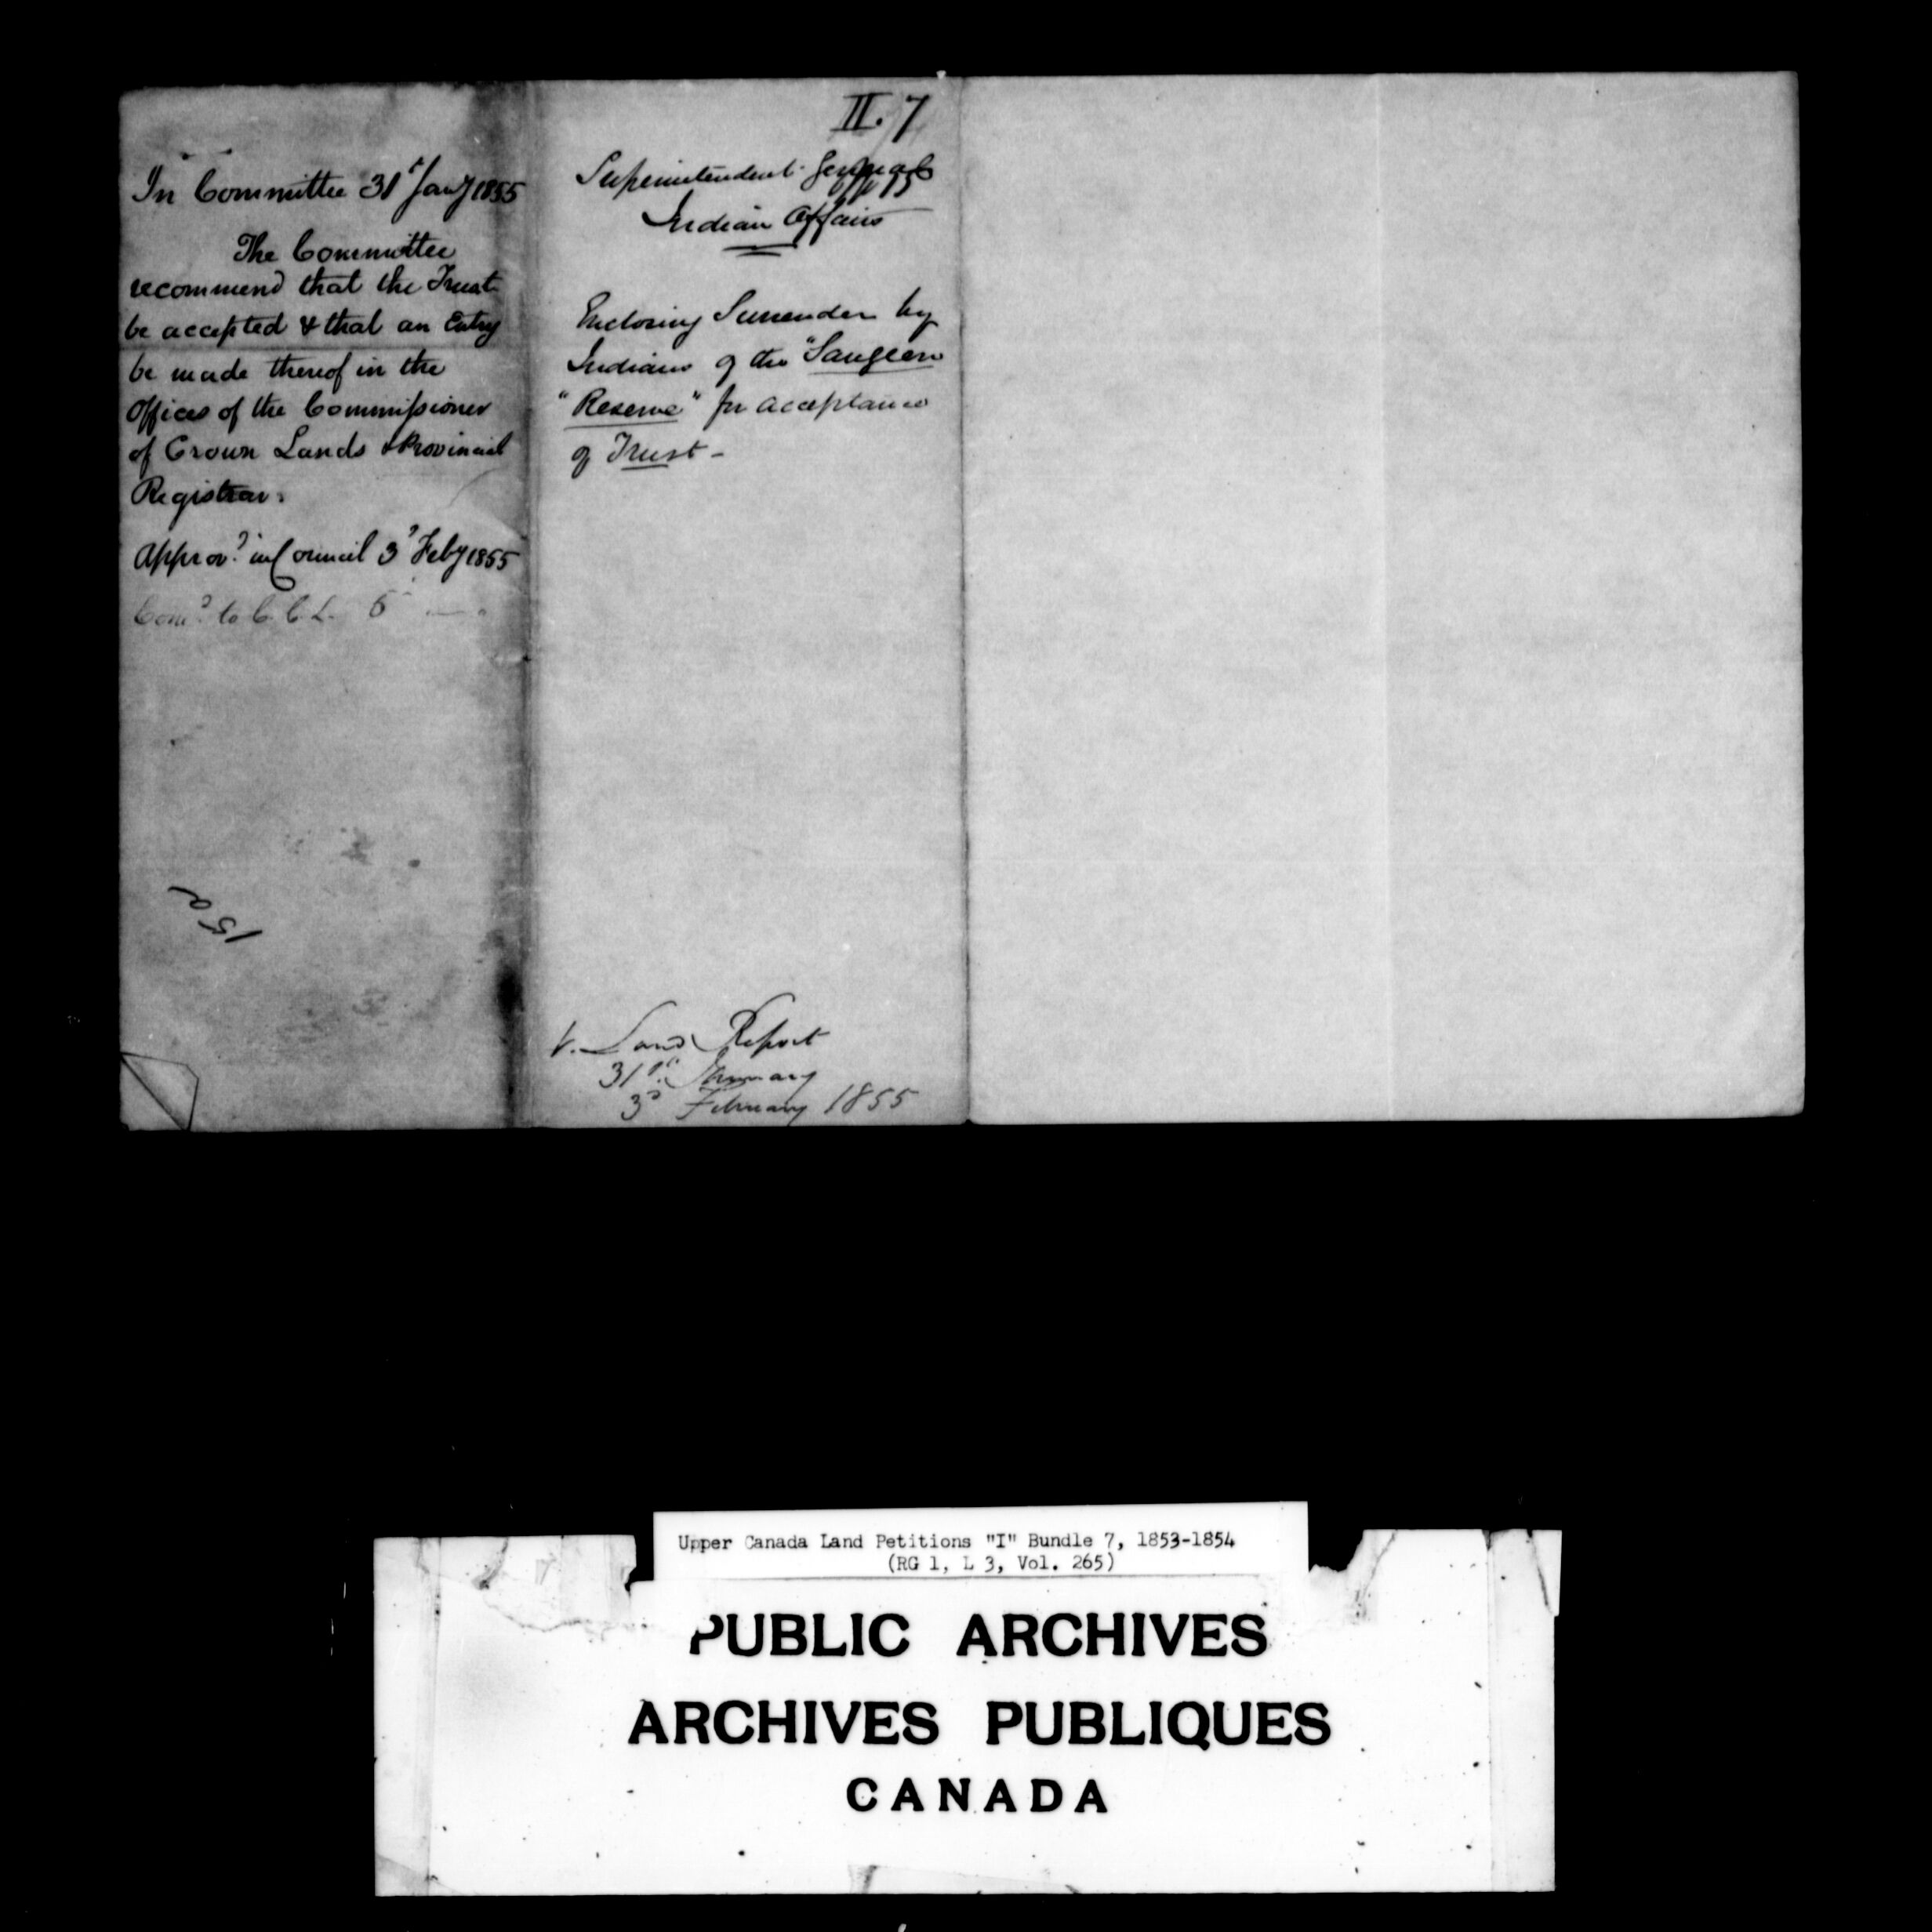 In Committee 31st Jany 1855
The Committee
recommend that the Trust
be accepted & that an Entry
be made thereof in the
Offices of the Commissioner
of Crown Lands & Provincial
Registrar.
Approvd in Council 3d Feby 1855
Comd to C. C. L. 6
150
II. 7
Superintendent General
Indian Affairs
Enclosing Surrender by
Indians of the "Saugeen
"Reserve" for acceptance
of Trust -
V. Land Report
31st January
3d February 1855
Upper Canada Land Petitions "I" Bundle 7, 1853-1854
(RG 1, L 3, Vol. 265)
PUBLIC ARCHIVES
ARCHIVES PUBLIQUES
CANADA